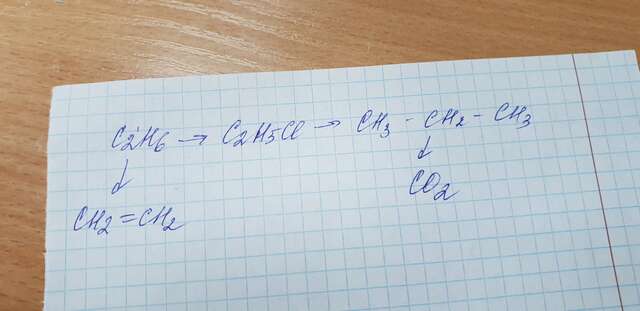 C2H6 → C2H5Cl → CH3 - CH2 - CH3
↓ ↓
CH2 = CH2 Cl2